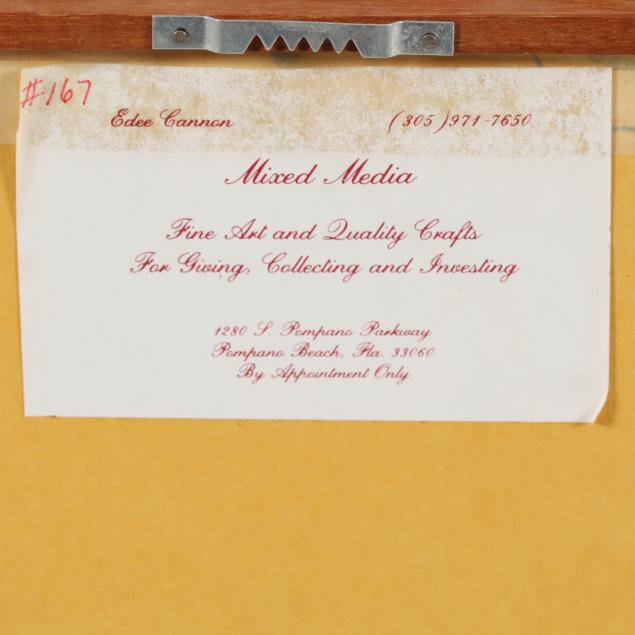 #167
Edee Cannon (305) 971-7650
Mixed Media
Fine Art and Quality Crafts
For Giving, Collecting and Investing
1280 S. Pompano Parkway
Pompano Beach, Fla. 33060
By Appointment Only